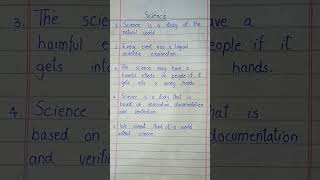 Science
1. Science is a study of the
natural world
2. Every event has a logical
scientific explanation
3. The science may have a
harmful effects on people if it
gets into a wrong hands.
4. Science is a study that is
based on observation, documentation
and verification
5. We cannot think of a world
without science
3. The
harmful
gets in
4. Science
based on
and verifi
have a
eople if it
hands.
is
documentation